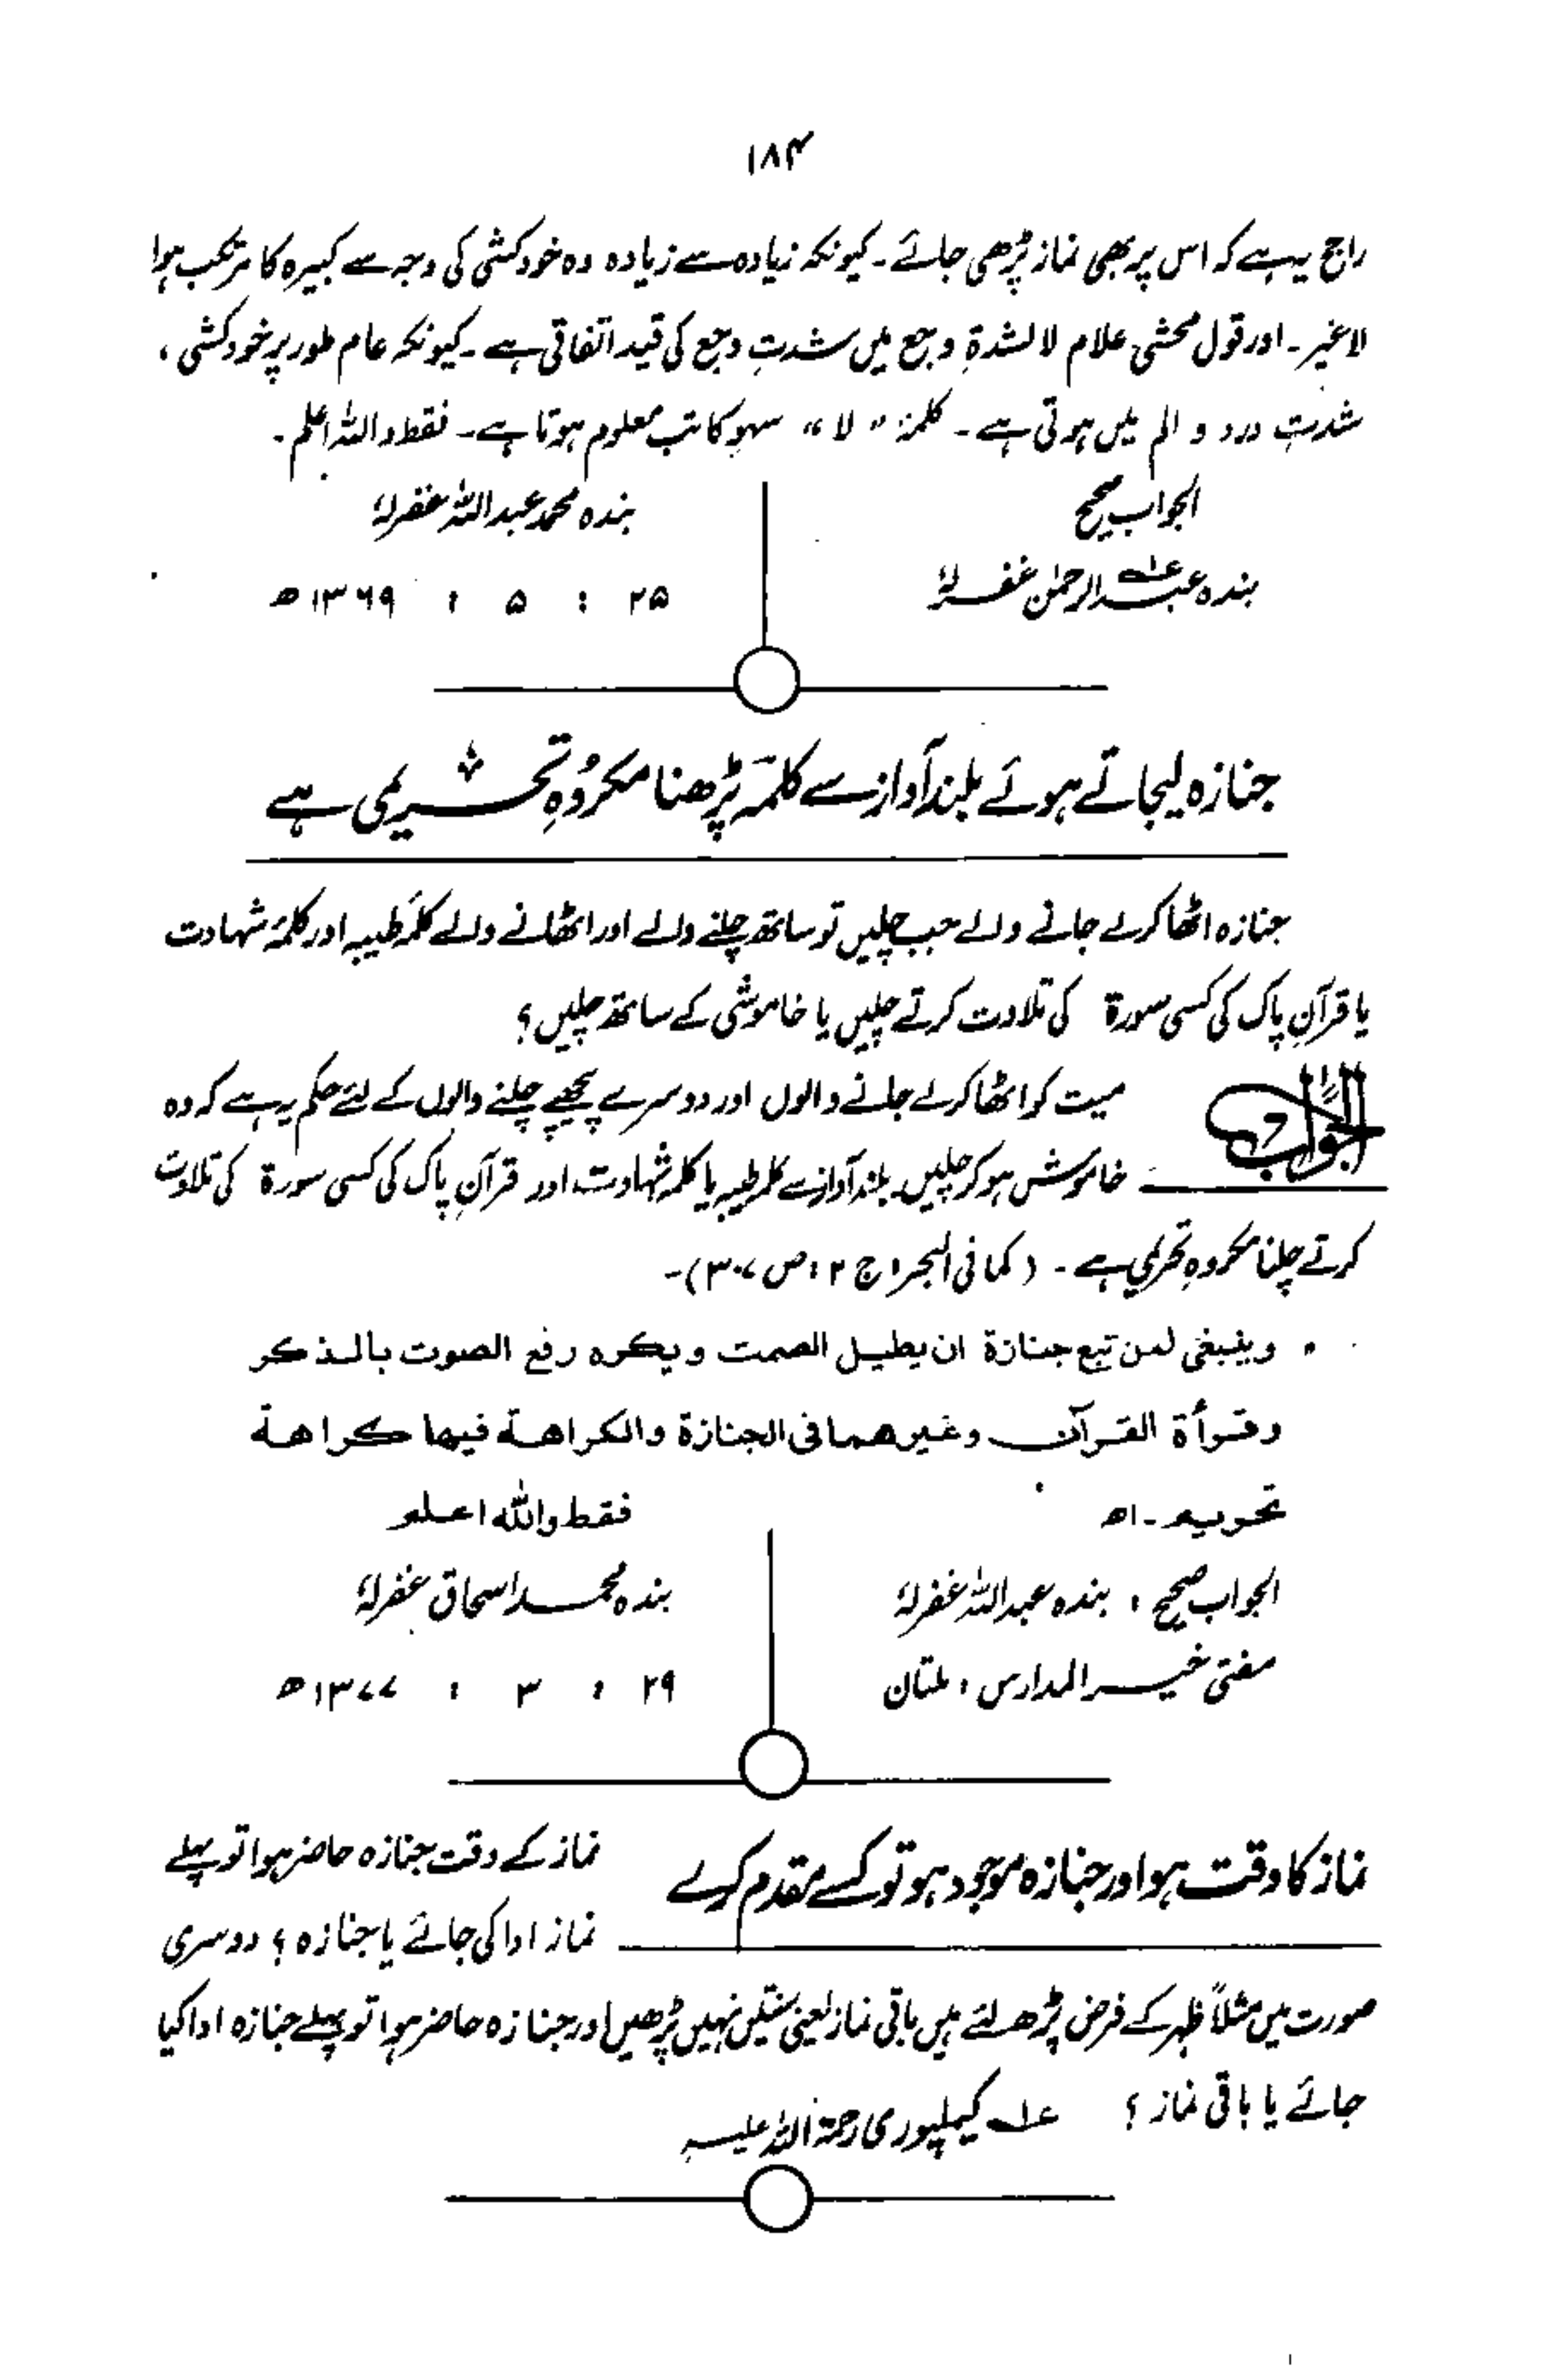 ۱۸۴
راجح یہ ہے کہ اس پر بھی نماز پڑھی جائے۔ کیونکہ زیادہ سے زیادہ وہ خودکشی کی وجہ سے کبیرہ کا مرتکب ہوا
لاغیر۔ اور قول محشی علام لا لشدۃ وجع میں شدتِ وجع کی قید اتفاقی ہے۔ کیونکہ عام طور پر خودکشی ،
شدتِ درد و الم میں ہوتی ہے۔ کلمۂ " لا " سہوِ کاتب معلوم ہوتا ہے۔ فقط واللہ اعلم۔
الجواب صحیح
بندہ عبدالرحمٰن غفرلہٗ
بندہ محمد عبداللہ غفرلہٗ
۲۵ : ۵ : ۱۳۶۹ھ
جنازہ لیجاتے ہوئے بلند آواز سے کلمہ پڑھنا مکروہِ تحریمی ہے
جنازہ اٹھا کر لے جانے والے جب چلیں تو ساتھ چلنے والے اور اٹھانے والے کلمۂ طیبہ اور کلمۂ شہادت
یا قرآنِ پاک کی کسی سورۃ کی تلاوت کرتے چلیں یا خاموشی کے ساتھ چلیں؟
الجواب
میت کو اٹھا کر لے جانے والوں اور دوسرے پیچھے چلنے والوں کے لئے حکم یہ ہے کہ وہ
خاموش ہو کر چلیں۔ بلند آواز سے کلمہ طیبہ یا کلمہ شہادت اور قرآنِ پاک کی کسی سورۃ کی تلاوت
کرتے چلنا مکروہِ تحریمی ہے۔ (کما فی البحر، ج ۲، ص ۳۰۷)۔
وینبغی لمن تبع جنازۃ ان یطیل الصمت ویکره رفع الصوت بالذکر
وقرأۃ القرآن وغیرھما فی الجنازۃ والکراھۃ فیھا کراھۃ
تحریم۔ اھ
فقط واللہ اعلم
الجواب صحیح ، بندہ عبداللہ غفرلہٗ
مفتی خیر المدارس ، ملتان
بندہ محمد اسحاق غفرلہٗ
۲۹ : ۳ : ۱۳۷۷ھ
نماز کا وقت ہو اور جنازہ موجود ہو تو کسے مقدم کرے
نماز کے وقت جنازہ حاضر ہوا تو پہلے
نماز ادا کی جائے یا جنازہ ؟ دوسری
صورت میں مثلاً ظہر کے فرض پڑھ لئے ہیں باقی نماز یعنی سنتیں نہیں پڑھیں اور جنازہ حاضر ہوا تو پہلے جنازہ ادا کیا
جائے یا باقی نماز ؟
عہ کیملپوری رحمۃ اللہ علیہ